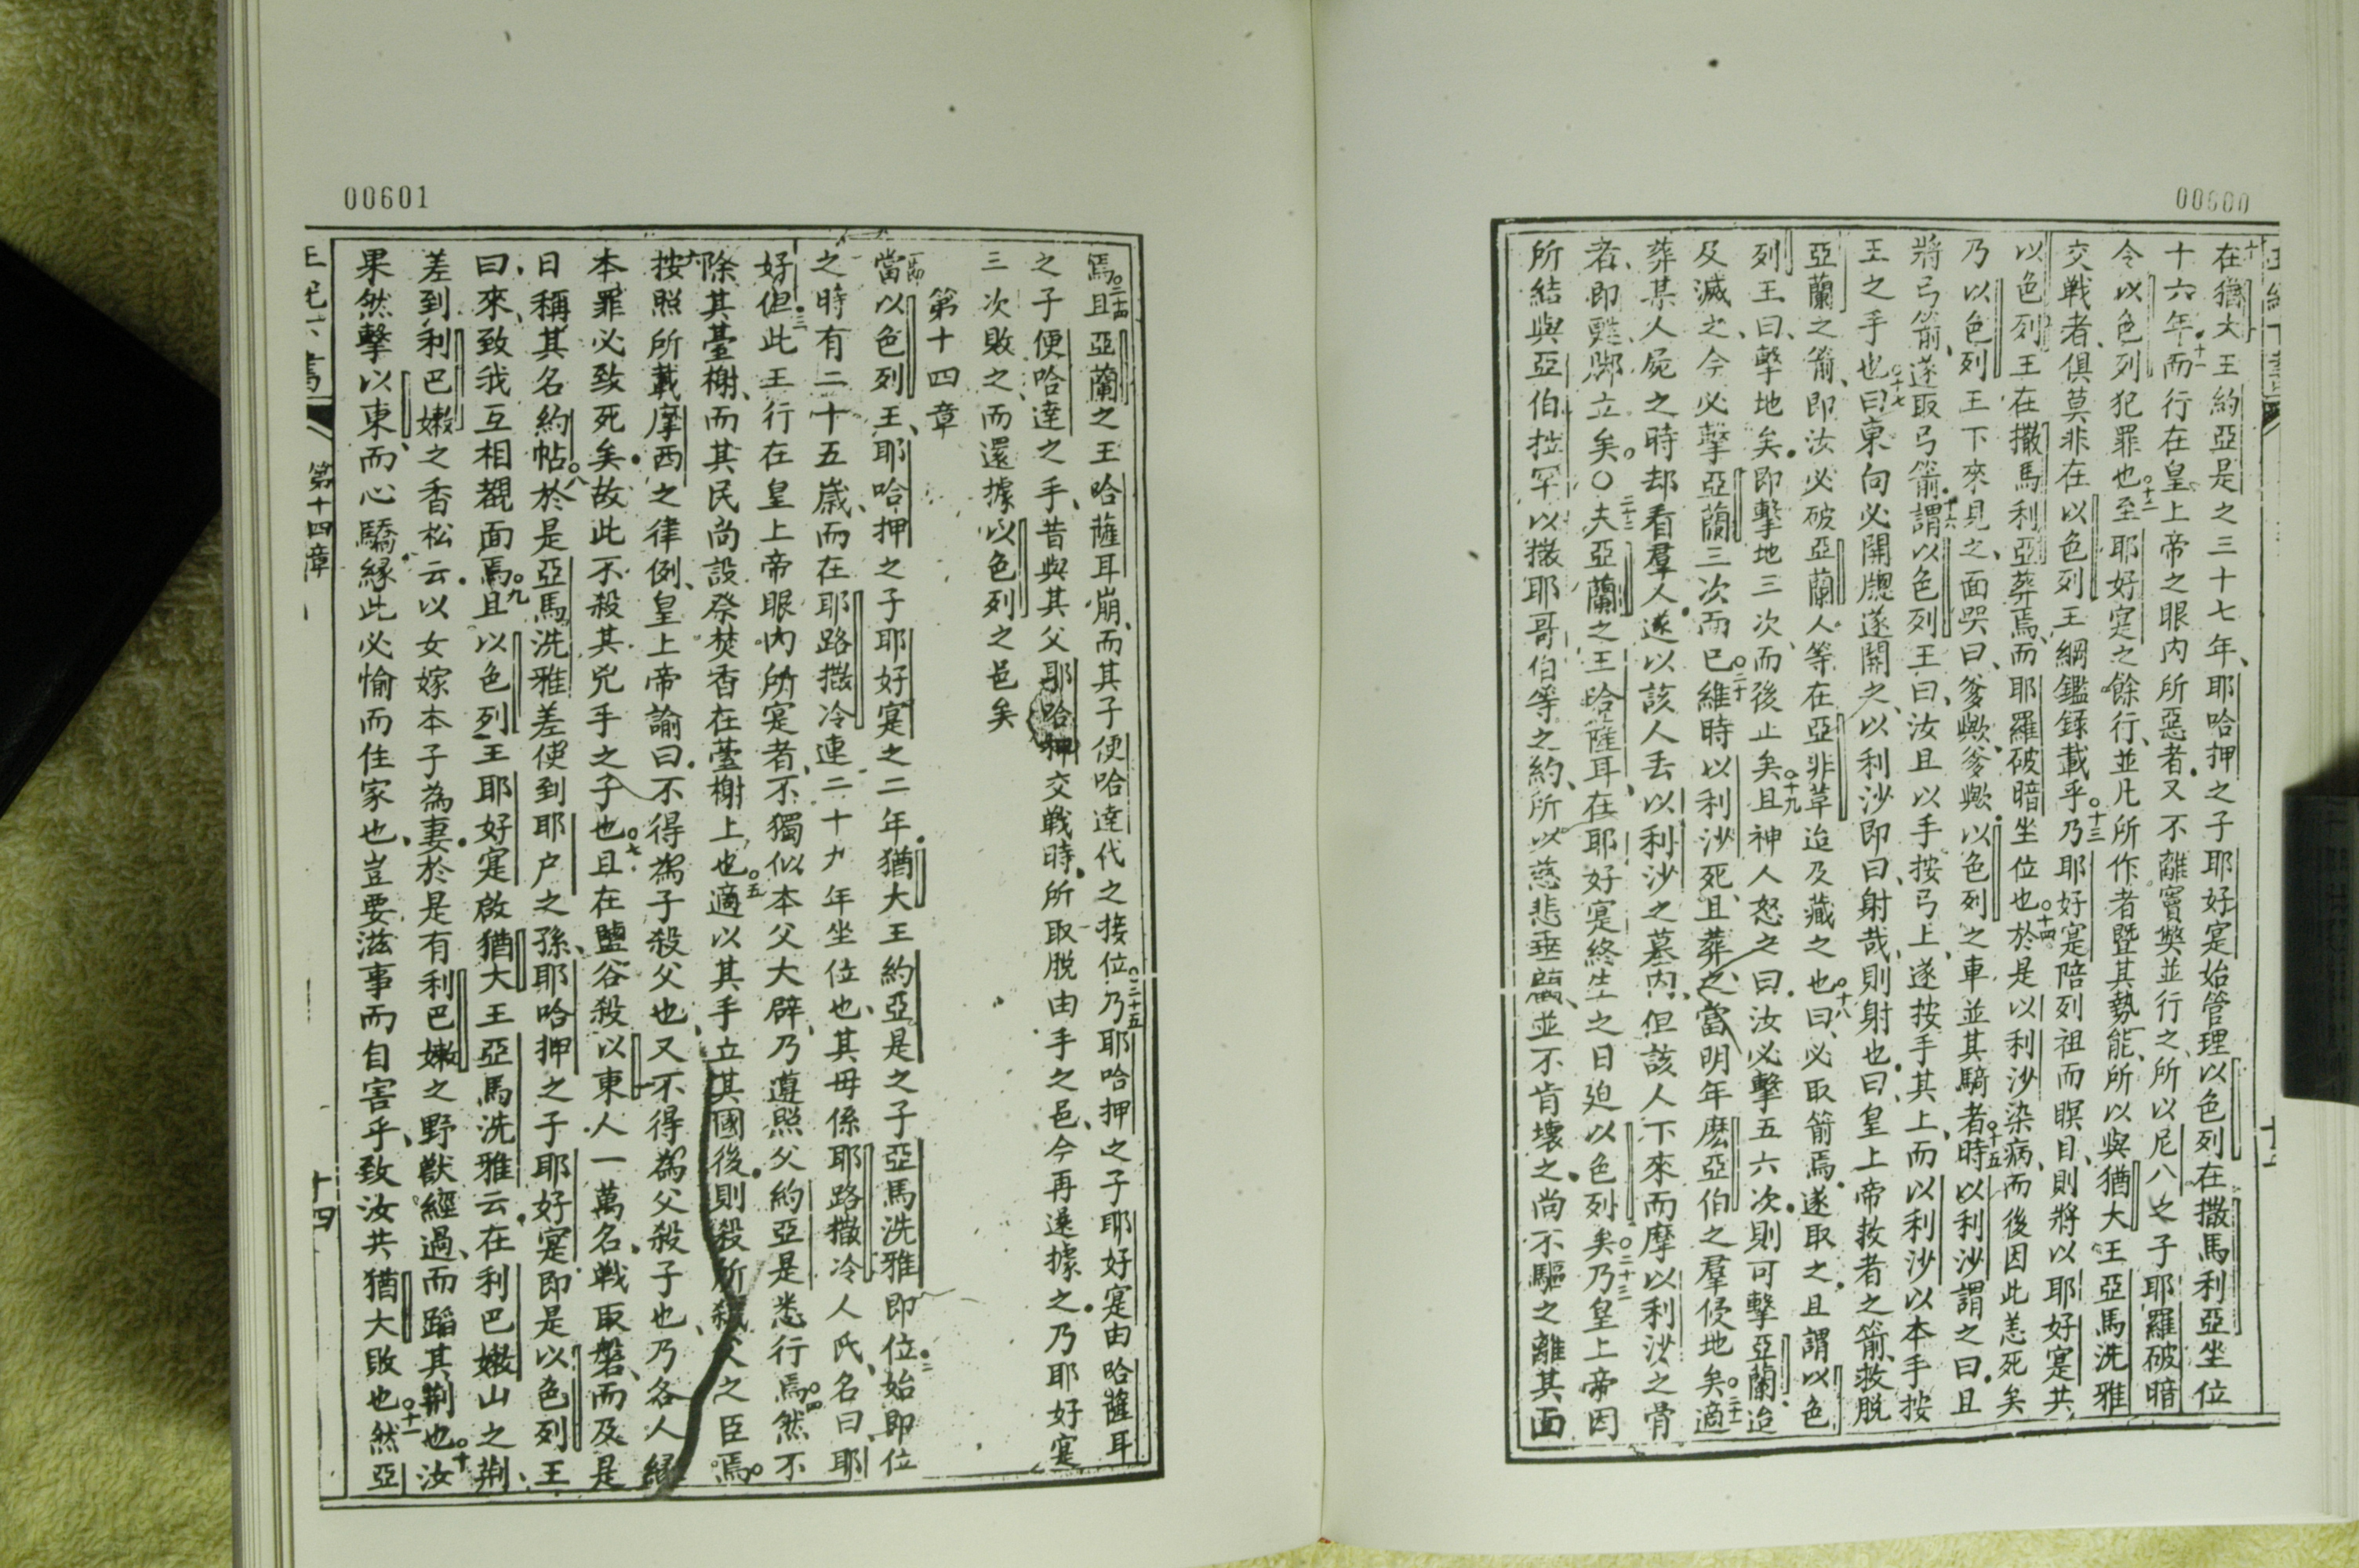 00600
在猶大王約亞是之三十七年、耶哈押之子耶好寔始管理以色列在撒馬利亞坐位
十六年而行在皇上帝之眼内所惡者又不離竇獘並行之所以尼八之子耶羅破暗
令以色列犯罪也至耶好寔之餘行、並凡所作者暨其勢能、所以與猶大王亞馬洗雅
交戰者、俱莫非在以色列王綱鑑錄載乎乃耶好寔陪列祖而瞑目、則將以耶好寔共
以色列王在撒馬利亞葬焉、而耶羅破暗坐位也於是以利沙染病、而後因此恙死矣
乃以色列王下來見之、面哭曰、爹歟、爹歟以色列之車並其騎者時以利沙謂之曰且
將弓箭、遂取弓箭謂以色列王曰、汝且以手按弓上、遂按手其上、而以利沙以本手按
王之手也曰東向必開牕遂開之、以利沙即曰、射哉、則射也曰、皇上帝救者之箭、救脫
亞蘭之箭、即汝必破亞蘭人等在亞非革迨及藏之也曰、必取箭焉遂取之且謂以色
列王曰、擊地矣即擊地三次、而後止矣且神人怒之曰汝必擊五六次則可擊亞蘭迨
及滅之、今必擊亞蘭三次而已維時以利沙死、且葬之、當明年麽亞伯之羣侵地矣適
葬某人屍之時却看羣人遂以該人丟以利沙之墓内、但該人下來而摩以利沙之骨
者、即甦、脚立矣〇夫亞蘭之王哈薩耳、在耶好寔終生之日廹以色列矣乃皇上帝因
所結與亞伯拉罕以撒耶哥伯等之約、所以慈悲垂顧、並不肯壞之尚不驅之離其面
00601
焉且亞蘭之王哈薩耳崩、而其子便哈達代之接位乃耶哈押之子耶好寔由哈薩耳
之子便哈達之手、昔與其父耶哈押交戰時、所取脫由手之邑、今再還據之乃耶好寔
三次敗之、而還據以色列之邑矣
第十四章
當以色列王、耶哈押之子耶好寔之二年猶大王約亞是之子亞馬洗雅即位始即位
之時有二十五歲、而在耶路撒冷連二十九年坐位也、其毋係耶路撒冷人氏、名曰、耶
好但此王行在皇上帝眼内所寔者、不獨似本父大辟、乃遵照父約亞是悉行焉然不
除其臺榭、而其民尚設祭焚香在臺榭上也適以其手立其國後則殺所殺父之臣焉
按照所載摩西之律例、皇上帝諭曰不得為子殺父也、又不得為父殺子也、乃各人緣
本罪必致死矣故此不殺其兇手之子也且在鹽谷殺以東人一萬名戰取磐、而及是
日稱其名約帖於是亞馬洗雅差使到耶户之孫、耶哈押之子耶好寔即是以色列王
曰、來、致我互相覩面焉且以色列王耶好寔啟猶大王亞馬洗雅云在利巴嫩山之荆、
差到利巴嫩之香松云以女嫁本子為妻於是有利巴嫩之野獸經過、而蹈其荆也汝
果然擊以東、而心驕緣此必愉而住家也、豈要滋事而自害乎、致汝共猶大敗也然亞
第十四章
十四